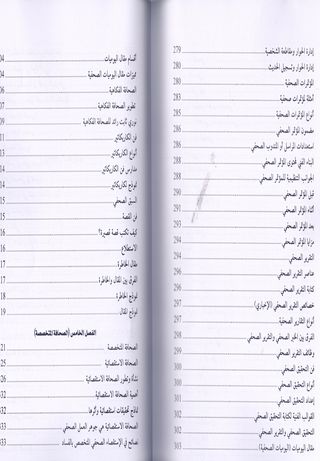 إدارة الحوار ومقاطعة الشخصية 279
إدارة الحوار وتسجيل الحديث 280
المؤثرات الصحفية 280
أمثلة لمؤثرات صحفية 283
أنواع المؤثرات الصحفية 285
مضمون المؤثر الصحفي 286
استعدادات المراسل أو المندوب الصحفي 286
البناء الفني لمحتوى المؤثر الصحفي 288
الجوانب التنظيمية للمؤثر الصحفي 288
قبل المؤثر الصحفي 290
أثناء المؤثر الصحفي 291
بعد المؤثر الصحفي 293
مزايا المؤثر الصحفي 293
التقرير الصحفي 294
عناصر التقرير الصحفي 295
كتابة التقرير الصحفي 296
خصائص التقرير الصحفي (الإخباري) 297
أنواع التقارير الصحفية 297
الفرق بين الخبر الصحفي والتقرير الصحفي 298
وظائف التقرير الصحفي 299
فن التحقيق الصحفي 300
أنواع التحقيق الصحفي 300
إعداد التحقيق الصحفي 301
القوالب الفنية لكتابة التحقيق الصحفي 302
التحقيق الصحفي والتقرير الصحفي 302
مقال اليوميات (اليوميات الصحفية) 303
أقسام مقال اليوميات 304
مميزات مقال اليوميات الصحفية 04
الصحافة الفكاهية 06
تطوير الصحافة الفكاهية 07
نوري ثابت رائد الصحافة الفكاهية 09
فن الكاريكاتير 11
أنواع الكاريكاتير 13
مدارس فن الكاريكاتير 14
نموذج لكاريكاتير 14
السبق الصحفي 15
فن القصة 15
كيف تكتب قصة قصيرة؟ 16
الاستطلاع 16
مقال الخاطرة 17
الفرق بين المقال والخاطرة 17
نموذج الخاطرة 18
نموذج المقال 19
الفصل الخامس (الصحافة المتخصصة)
الصحافة المتخصصة 21
الصحافة الاستقصائية 25
نشأة وتطور الصحافة الاستقصائية 26
أهمية الصحافة الاستقصائية 32
نماذج تحقيقات استقصائية وأثرها 32
الصحافة الاستقصائية هي جوهر العمل الصحفي 33
نصائح في الإستقصاء الصحفي المختص بالفساد 33